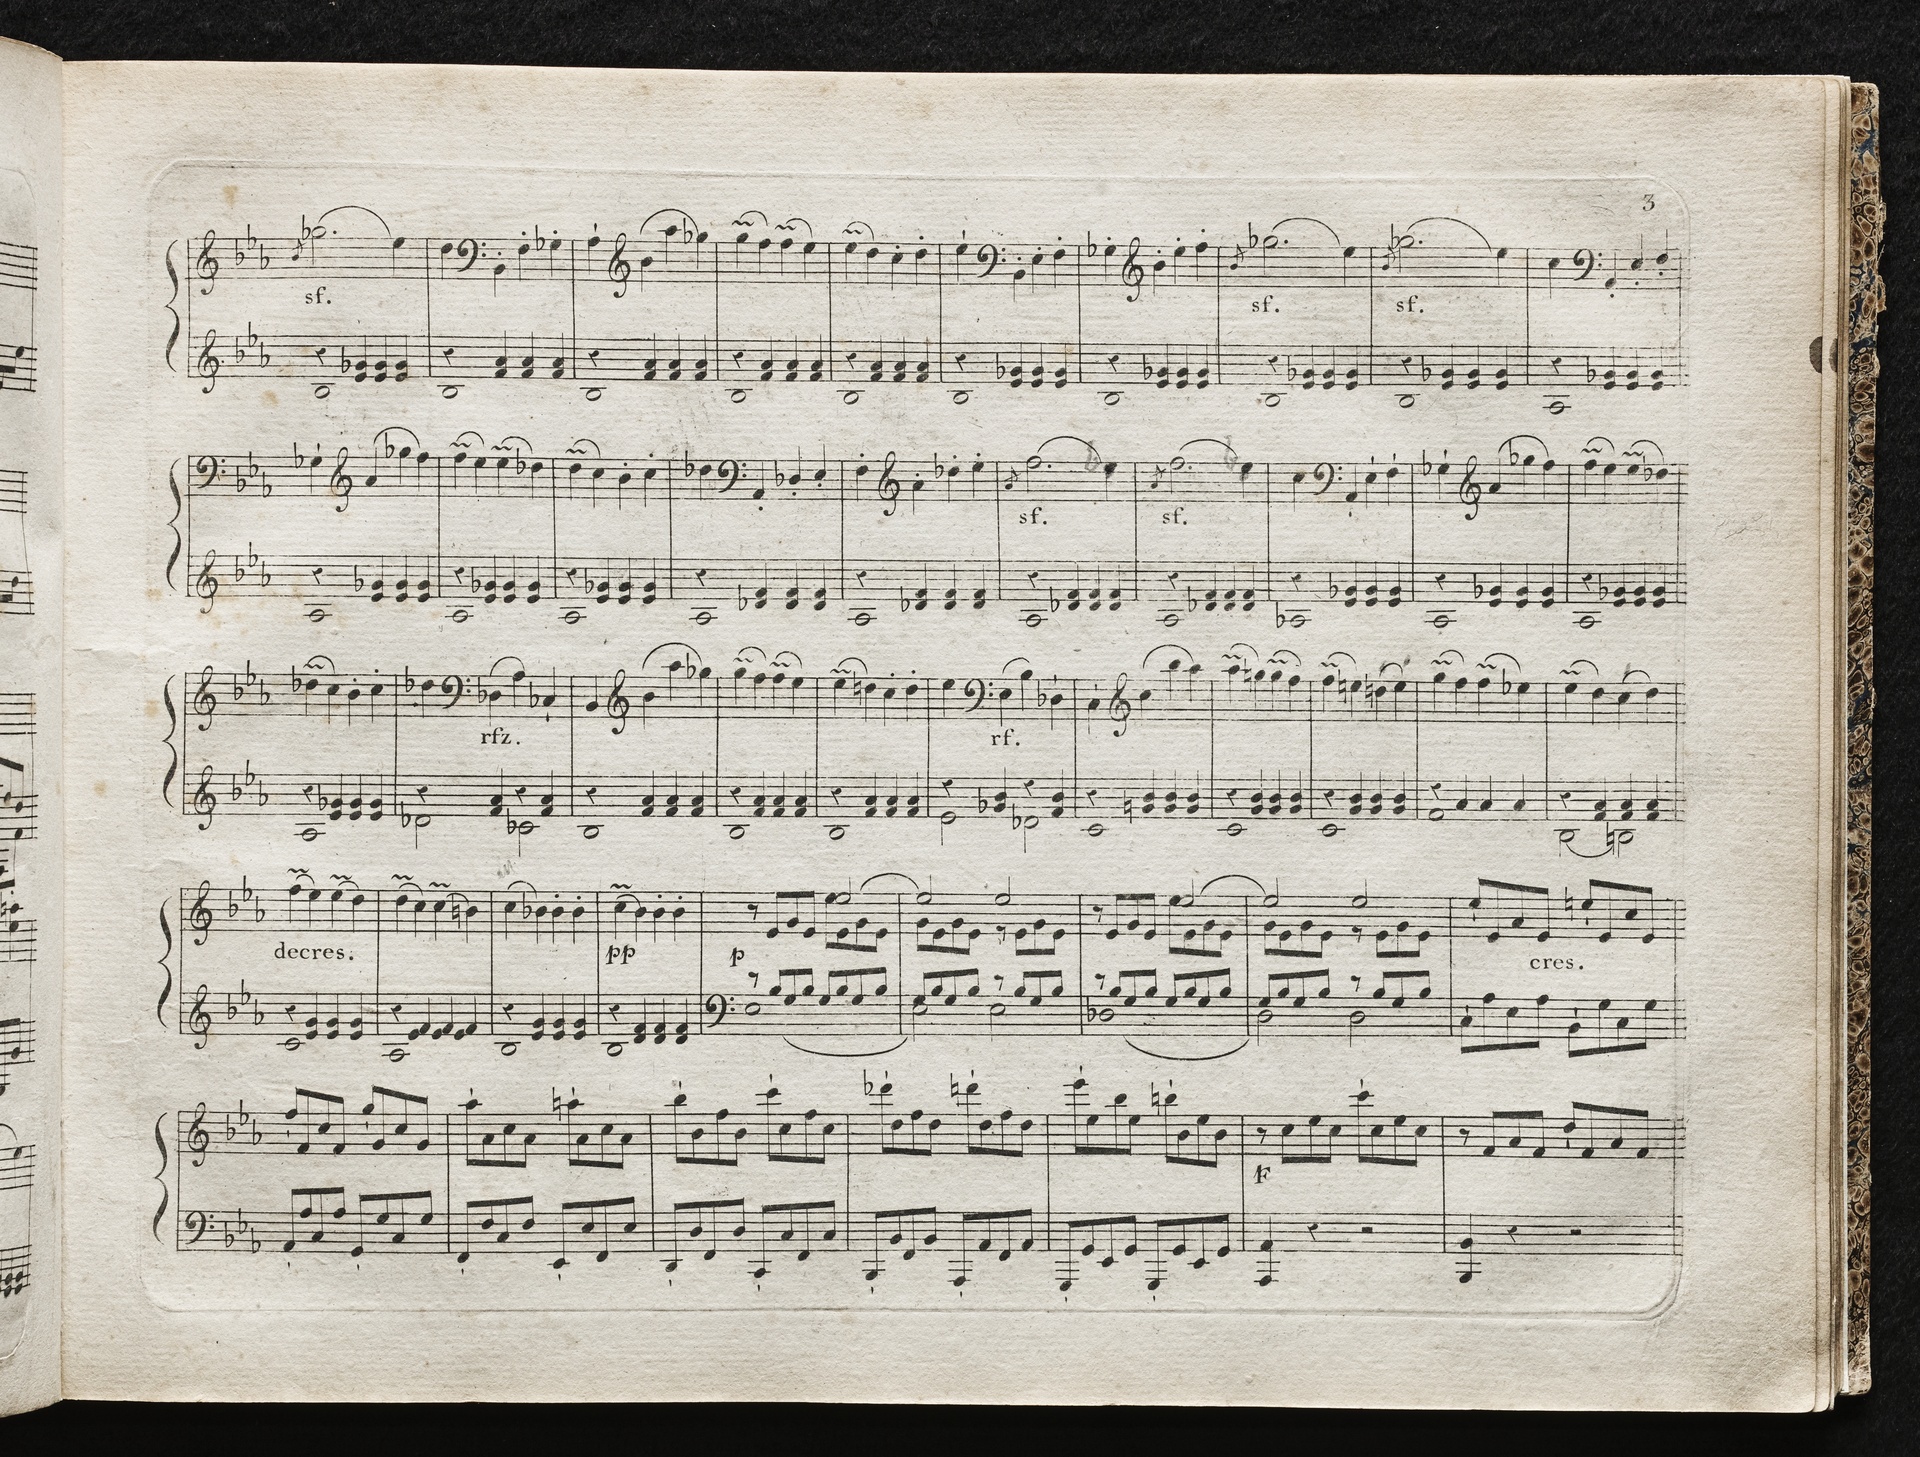 3
sf. sf. sf.
sf. sf.
rfz. rf.
decres. pp p cres.
F